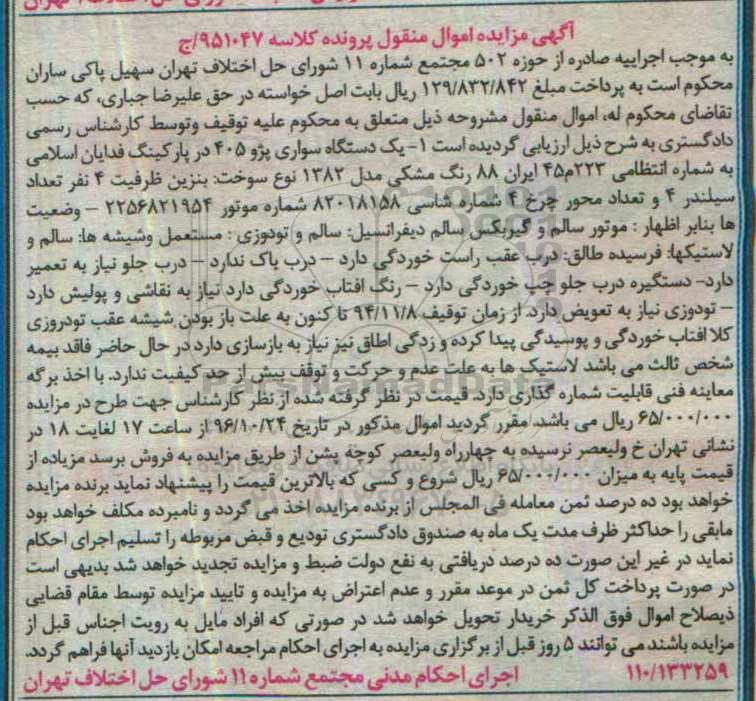 آگهی مزایده اموال منقول پرونده کلاسه ۹۵۱۰۴۷/ج
به موجب اجراییه صادره از حوزه ۵۰۲ مجتمع شماره ۱۱ شورای حل اختلاف تهران سهیل پاکی ساران
محکوم است به پرداخت مبلغ ۱۲۹/۸۳۲/۸۴۲ ریال بابت اصل خواسته در حق علیرضا جباری، که حسب
تقاضای محکوم له، اموال منقول مشروحه ذیل متعلق به محکوم علیه توقیف وتوسط کارشناس رسمی
دادگستری به شرح ذیل ارزیابی گردیده است ۱- یک دستگاه سواری پژو ۴۰۵ در پارکینگ فدایان اسلامی
به شماره انتظامی ۲۲۳م۴۵ ایران ۸۸ رنگ مشکی مدل ۱۳۸۲ نوع سوخت: بنزین ظرفیت ۴ نفر تعداد
سیلندر ۴ و تعداد محور چرخ ۴ شماره شاسی ۸۲۰۱۸۱۵۸ شماره موتور ۲۲۵۶۸۲۱۹۵۴ – وضعیت
ها بنابر اظهار : موتور سالم و گیربکس سالم دیفرانسیل: سالم و تودوزی : مستعمل وشیشه ها: سالم و
لاستیکها: فرسیده طالق: درب عقب راست خوردگی دارد – درب باک ندارد – درب جلو نیاز به تعمیر
دارد- دستگیره درب جلو چپ خوردگی دارد – رنگ افتاب خوردگی دارد نیاز به نقاشی و پولیش دارد
– تودوزی نیاز به تعویض دارد. از زمان توقیف ۹۴/۱۱/۸ تا کنون به علت باز بودن شیشه عقب تودروزی
کلا افتاب خوردگی و پوسیدگی پیدا کرده و زدگی اطاق نیز نیاز به بازسازی دارد در حال حاضر فاقد بیمه
شخص ثالث می باشد لاستیک ها به علت عدم و حرکت و توقف بیش از حد کیفیت ندارد. با اخذ برگه
معاینه فنی قابلیت شماره گذاری دارد. قیمت در نظر گرفته شده از نظر کارشناس جهت طرح در مزایده
۶۵/۰۰۰/۰۰۰ ریال می باشد. مقرر گردید اموال مذکور در تاریخ ۹۶/۱۰/۲۴ از ساعت ۱۷ لغایت ۱۸ در
نشانی تهران خ ولیعصر نرسیده به چهارراه ولیعصر کوچه یشن از طریق مزایده به فروش برسد مزیاده از
قیمت پایه به میزان ۶۵/۰۰۰/۰۰۰ ریال شروع و کسی که بالاترین قیمت را پیشنهاد نماید برنده مزایده
خواهد بود ده درصد ثمن معامله فی المجلس از برنده مزایده اخذ می گردد و نامبرده مکلف خواهد بود
مابقی را حداکثر ظرف مدت یک ماه به صندوق دادگستری تودیع و قبض مربوطه را تسلیم اجرای احکام
نماید در غیر این صورت ده درصد دریافتی به نفع دولت ضبط و مزایده تجدید خواهد شد بدیهی است
در صورت پرداخت کل ثمن در موعد مقرر و عدم اعتراض به مزایده و تایید مزایده توسط مقام قضایی
ذیصلاح اموال فوق الذکر خریدار تحویل خواهد شد در صورتی که افراد مایل به رویت اجناس قبل از
مزایده باشند می توانند ۵ روز قبل از برگزاری مزایده به اجرای احکام مراجعه امکان بازدید آنها فراهم گردد.
۱۱۰/۱۳۳۲۵۹ اجرای احکام مدنی مجتمع شماره ۱۱ شورای حل اختلاف تهران